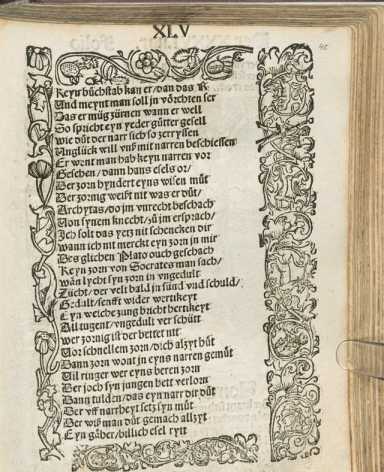 XLV
45
Keyn bůchstab kan er / dan das R
Und meynt man soll in vörchten ser
Das er müg zürnen wann er well
So spricht eyn yeder gůtter gesell
wie důt der narr sich so zerryssen
Unglück will vnß mit narren beschiessen
Er went man hab keyn narren vor
Gesehen / dann hans esels or /
Der zorn hyndert eyns wisen můt
Der zornig weißt nit was er důt /
Archytas / do jm vnrecht beschach
Von synem knecht / zů jm er sprach /
Jch solt das yetz nit schencken dir
wann ich nit merckt eyn zorn in mir
Des glichen Plato ouch geschach
Keyn zorn von Socrates man sach /
wän lycht syn zorn in vngedult
Zücht / der velt bald jn sünd vnd schuld /
Gedult / senfft wider wertikeyt
Eyn weiche zung bricht hertikeyt
All tugent / vngedult verschütt
wer zornig ist der bettet nit
Vor schnellem zorn / dich alzyt hüt
Dann zorn wont in eyns narren gemüt
Vil ringer wer eyns beren zorn
Der joch syn jungen hett verlorn
Dann tulden / das eyn narr dir důt
Der vff narrheyt setz syn můt
Der wiß man důt gemach allzyt
Eyn gäher / billich esel rytt